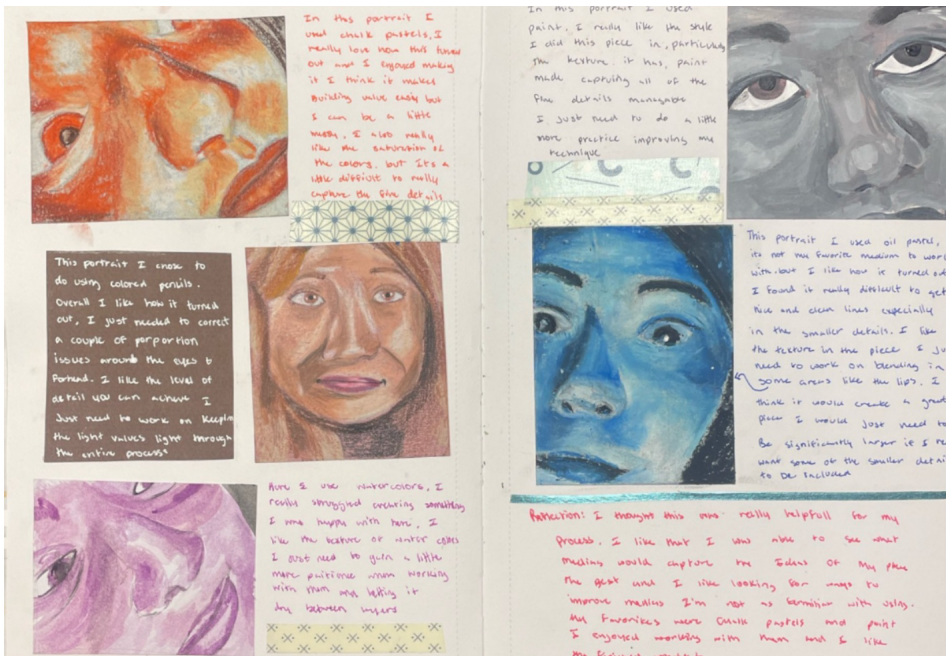 In this portrait I
used chalk pastels, I
really love how this turned
out and I enjoyed making
it I think it makes
Building value easy but
I can be a little
messy. I also really
like the saturation of
the colors. but It's a
little difficult to really
capture the fine details
This portrait I chose to
do using colored pencils.
Overall I like how it turned
out, I just needed to correct
a couple of porportion
issues around the eyes &
Forhead. I like the level of
detail you can achieve I
Just need to work on Keeping
the light values light through
the entire process
Here I use watercolors, I
really struggled creating something
I was happy with here, I
like the texture of water colors
I Just need to gain a little
more when working
with them and letting it
dry between layers
In this portrait I used
paint. I really like the style
I did this piece in, particularly
the texture. it has, paint
made capturing all of the
fine details managable
I Just need to do a little
more practice improving my
technique
This portrait I used oil pastel,
its not my favorite medium to work
with. but I like how it turned out
I found it really difficult to get
Nice and clean lines especially
in the smaller details. I like
the texture in the piece I Ju
need to work on blending in
some areas like the lips. I
think it would create a great
piece I would Just need to
Be significantly larger if I re
want some of the smaller detai
to be included
Reflection: I thought this was really helpfull for my
Process. I like that I was able to see what
medium would capture the Ideas of My
the Best and I like looking for ways to
improve mediums I'm not as familiar with using.
My favorites were Chalk pastels and paint
I enjoyed working with them and I like